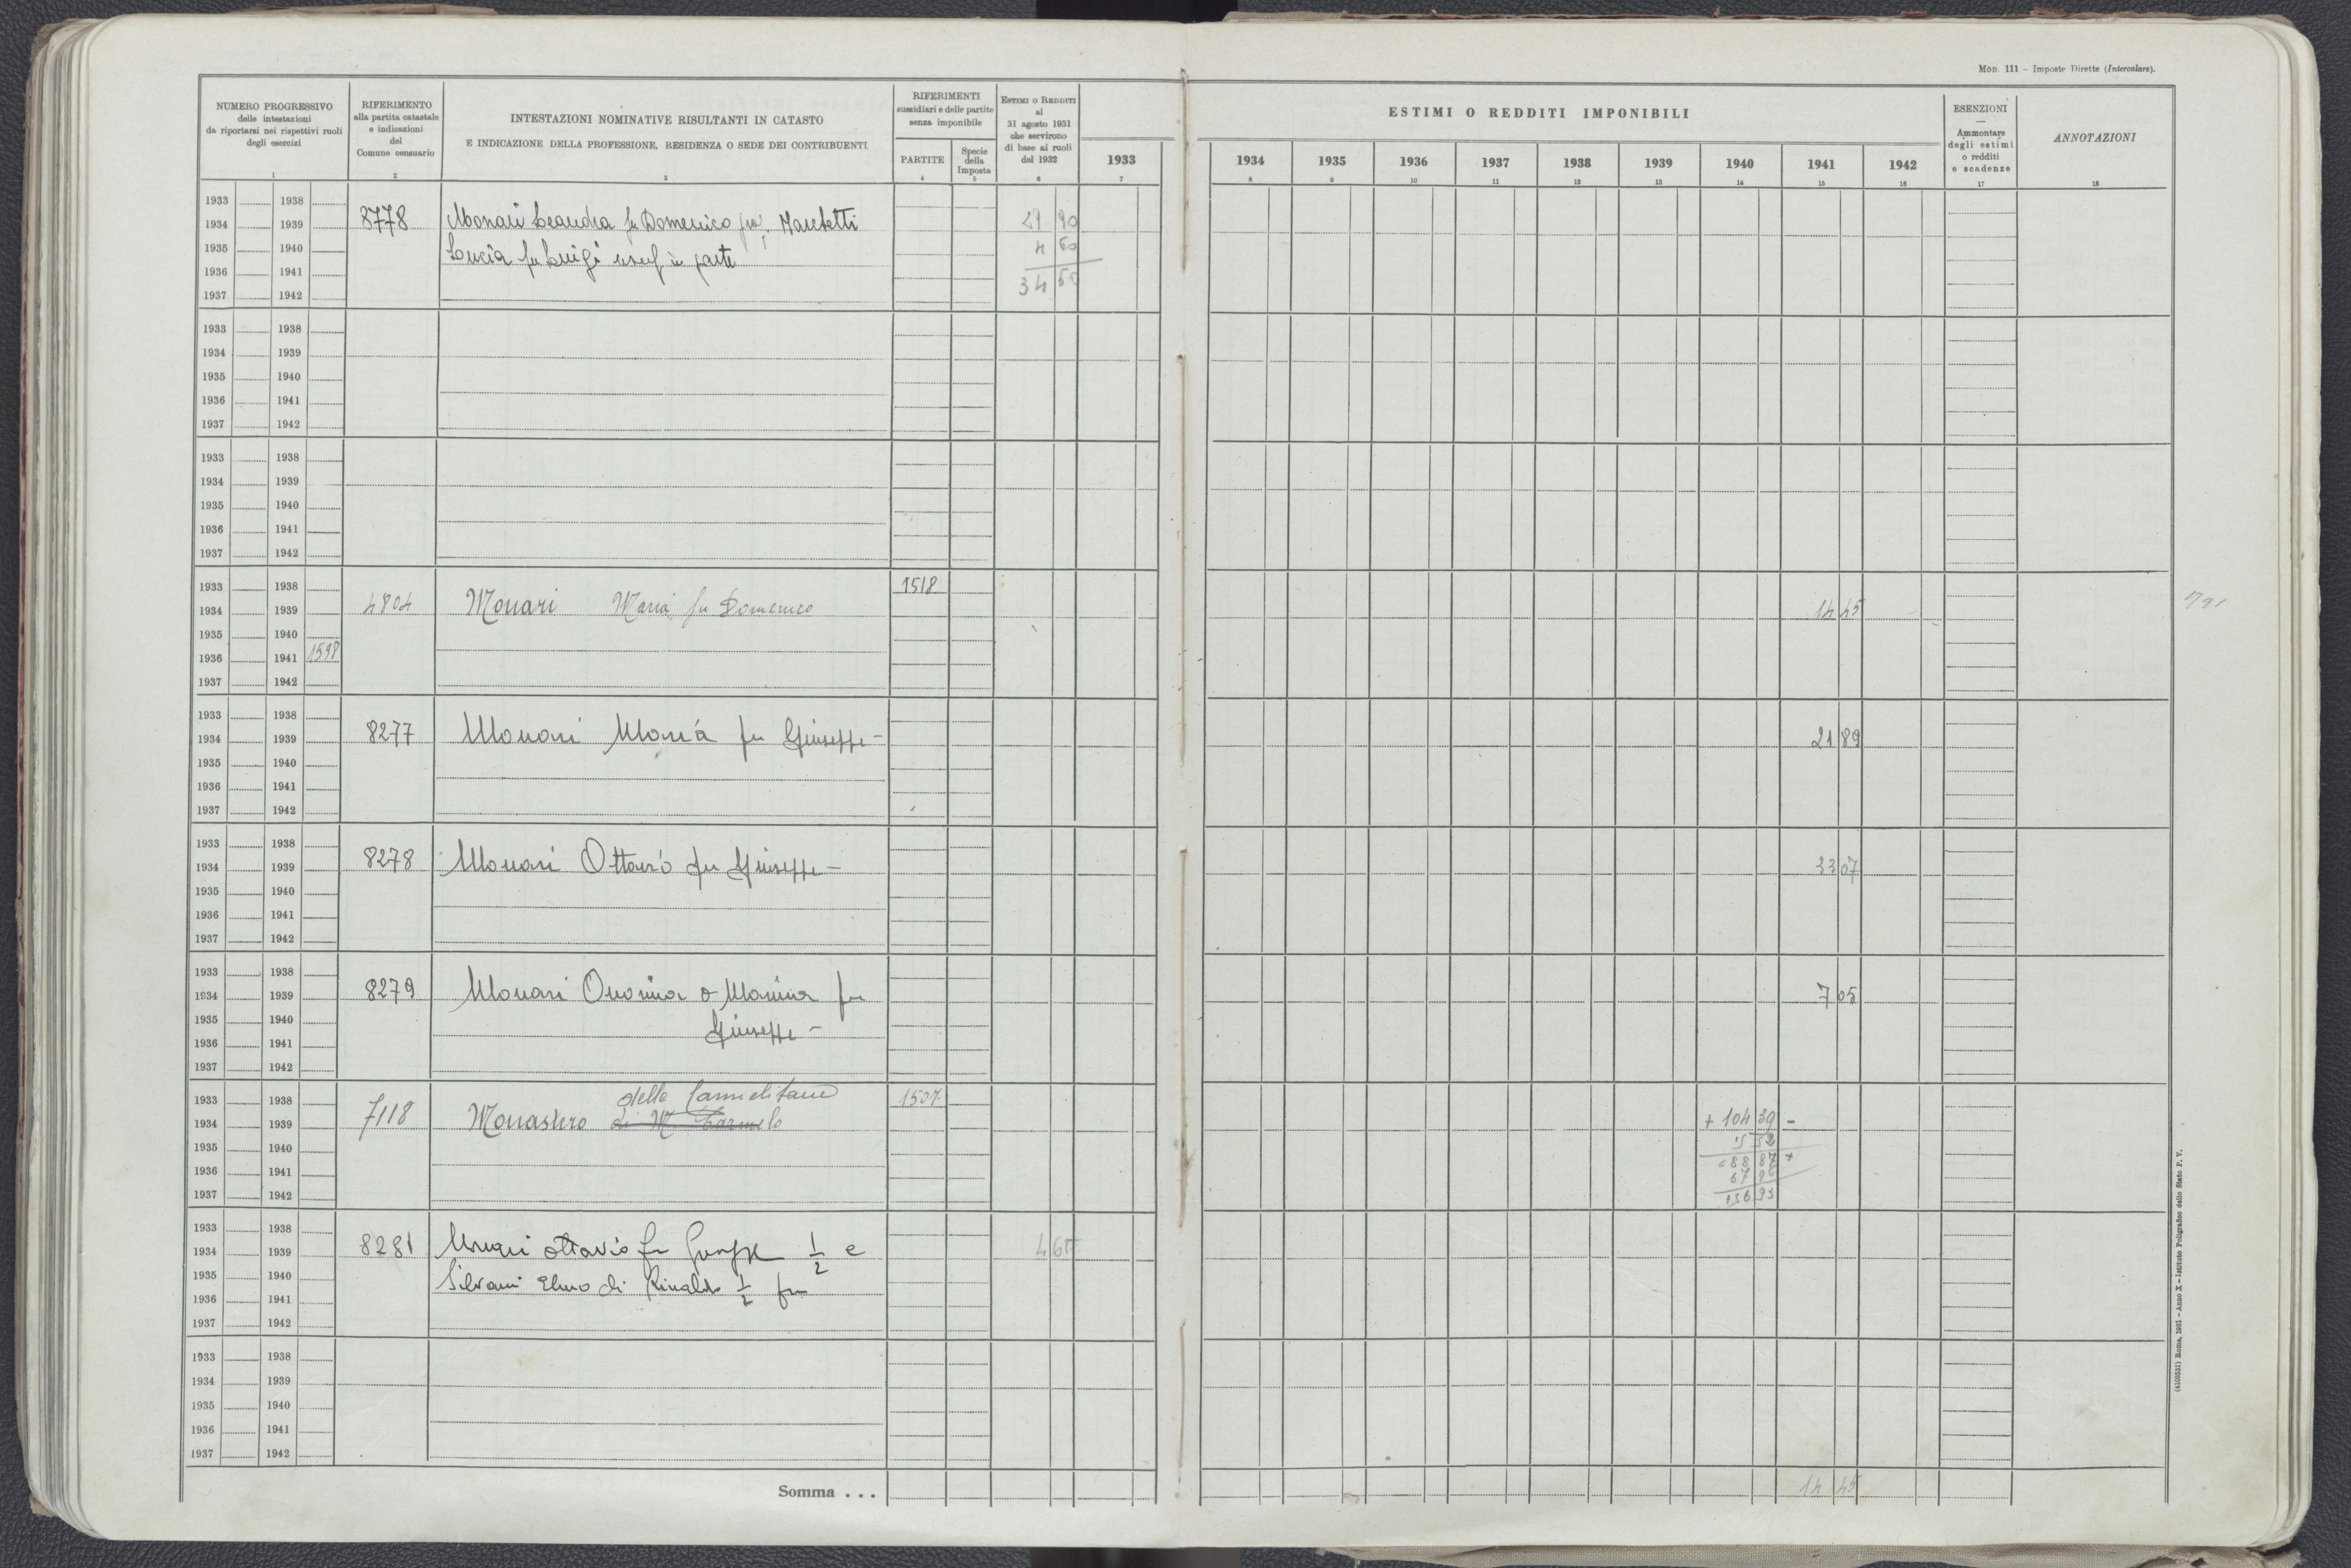 Mod. 111 – Imposte Dirette (Intercalare).
NUMERO PROGRESSIVO
delle intestazioni
da riportarsi nei rispettivi ruoli
degli esercizi
1
RIFERIMENTO
alla partita catastale
e indicazioni
del
Comune censuario
2
INTESTAZIONI NOMINATIVE RISULTANTI IN CATASTO
E INDICAZIONE DELLA PROFESSIONE, RESIDENZA O SEDE DEI CONTRIBUENTI
3
RIFERIMENTI
sussidiari e delle partite
senza imponibile
PARTITE
4
Specie
della
Imposta
5
Estimi o Redditi
al
31 agosto 1931
che servirono
di base ai ruoli
del 1932
6
1933
7
ESTIMI O REDDITI IMPONIBILI
1934 1935 1936 1937 1938 1939 1940 1941 1942
8 9 10 11 12 13 14 15 16
ESENZIONI
—
Ammontare
degli estimi
o redditi
e scadenze
17
ANNOTAZIONI
18
1933 1938
1934 1939 8778 Monari Leandra fu Domenico Marchetti 29 90
1935 1940 Lucia fu Luigi usuf in parte 4 60
1936 1941 34 50
1937 1942
1933 1938
1934 1939
1935 1940
1936 1941
1937 1942
1933 1938
1934 1939
1935 1940
1936 1941
1937 1942
1933 1938 1518
1934 1939 4804 Monari Maria fu Domenico 14 45
1935 1940
1936 1941 1598
1937 1942
1933 1938
1934 1939 8277 Monari Maria fu Giuseppe – 21 89
1935 1940
1936 1941
1937 1942
1933 1938
1934 1939 8278 Monari Ottavio fu Giuseppe – 33 07
1935 1940
1936 1941
1937 1942
1933 1938
1934 1939 8279 Monari o Marina fu 7 05
1935 1940 Giuseppe –
1936 1941
1937 1942
1933 1938 delle Carmelitane 1507
1934 1939 7118 Monastero di M Carmelo + 104 39 –
1935 1940 15 52
1936 1941 88 87 +
67 96
1937 1942 156 93
1933 1938
1934 1939 8281 Monari ottavio fu 1/2 e 4 65
1935 1940 Silvani Elmo di Rinaldo 1/2 fu
1936 1941
1937 1942
1933 1938
1934 1939
1935 1940
1936 1941
1937 1942
Somma . . . 14 45
(410551) Roma, 1931 – Anno X – Istituto Poligrafico dello Stato P. V.